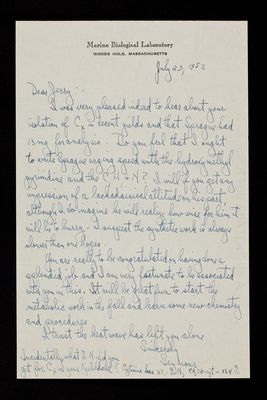 Marine Biological Laboratory
WOODS HOLE, MASSACHUSETTS
July 23, 1952
Dear Jerry:-
I was very pleased indeed to hear about your
isolation of C, in decent yields and that Sprague had
13 mg. for analysis. Do you feel that I ought
to write Sprague urging speed with the hydroxymethyl
pyrimidine and the C N? I will if you get any
impression of a lackadaisical attitude on his part,
although I so imagine he will realize how wise for him it
will be to hurry. I suspect the synthetic work is always
slower than one hopes.
You are really to be congratulated on having done a
splendid job and I am very fortunate to be associated
with you in this. It will be great fun to start the
metabolic work in the fall and learn some new chemistry
and procedures.
I trust the heat wave has left you alone.
Sincerely
Seymour
Incidentally, what % N did you
get for C, in your Kjeldahl? Cytosine has 37.